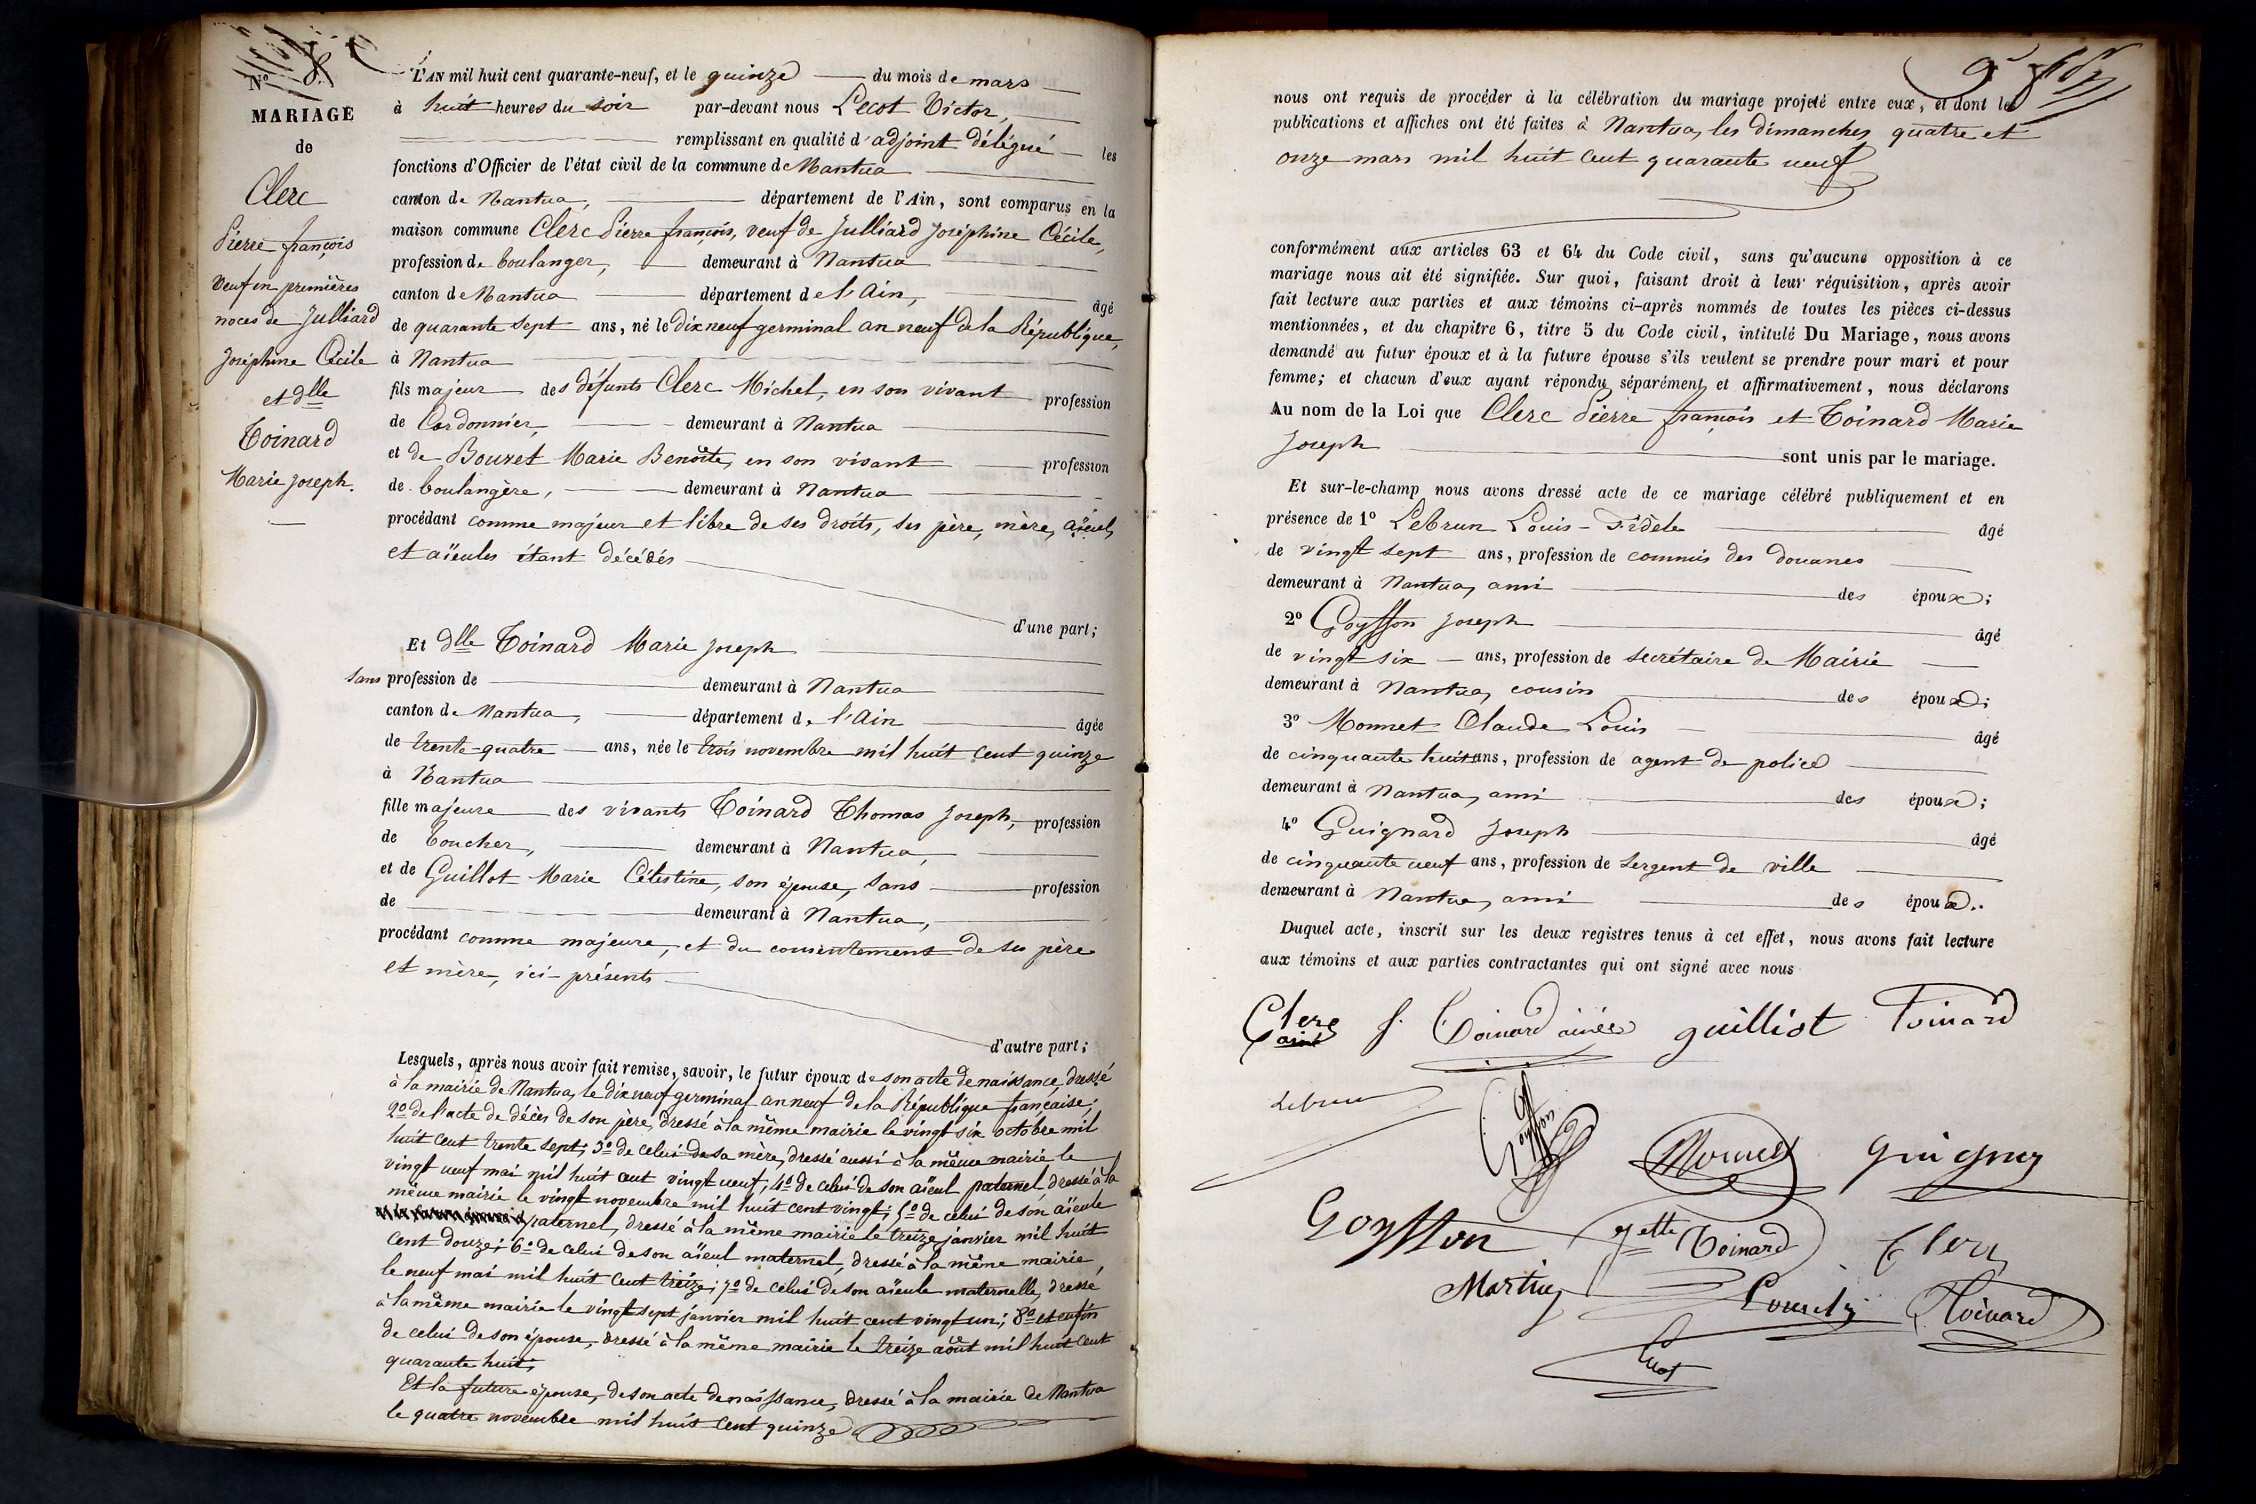 N° 8.
MARIAGE
de
Clerc
Pierre françois
Veuf en premières
noces de Julliard
Joséphine Cécile
et dlle
Toinard
Marie Joseph.
L'AN mil huit cent quarante-neuf, et le quinze du mois de mars
à huit heures du soir par-devant nous Lecot Victor,
remplissant en qualité d'adjoint délégué les
fonctions d'Officier de l'état civil de la commune de Nantua
canton de Nantua, département de l'Ain, sont comparus en la
maison commune Clerc Pierre françois, veuf de Julliard Joséphine Cécile,
profession de boulanger, demeurant à Nantua
canton de Nantua département de l'Ain, âgé
de quarante sept ans, né le Dix neuf germinal an neuf de la République,
à Nantua
fils majeur des défunts Clerc Michel, en son vivant profession
de Cordonnier, demeurant à Nantua
et de Bouvet Marie Benoîte, en son vivant profession
de boulangère, demeurant à Nantua
procédant comme majeur et libre de ses droits, ses père, mère, aïeul,
et aïeules étant décédés
d'une part;
Et dlle Toinard Marie Joseph
sans profession de demeurant à Nantua
canton de Nantua, département de l'Ain âgée
de trente-quatre ans, née le trois novembre mil huit cent quinze
à Nantua
fille majeure des vivants Toinard Thomas Joseph, profession
de Toucher, demeurant à Nantua,
et de Guillot Marie Célestine, son épouse, sans profession
de demeurant à Nantua,
procédant comme majeure, et du consentement de ses père
et mère, ici-présents
d'autre part;
Lesquels, après nous avoir fait remise, savoir, le futur époux de son acte de naissance, dressé
à la mairie de Nantua, le dix neuf germinal an neuf de la République française;
2° de l'acte de décès de son père, dressé à la même mairie le vingt six octobre mil
huit cent trente sept; 3° de celui de sa mère, dressé aussi à la même mairie le
vingt neuf mai mil huit cent vingt neuf; 4° de celui de son aïeul paternel dressé à la
même mairie le vingt novembre mil huit cent vingt; 5° de celui de son aïeule
paternel, dressé à la même mairie le treize janvier mil huit
cent douze; 6° de celui de son aïeul maternel, dressé à la même mairie,
le neuf mai mil huit cent treize; 7° de celui de son aïeule maternelle, dressé
à la même mairie le vingt sept janvier mil huit cent vingt un; 8° et enfin
de celui de son épouse, dressé à la même mairie le treize août mil huit cent
quarante huit;
Et la future épouse, de son acte de naissance, dressé à la mairie de Nantua
le quatre novembre mil huit cent quinze
nous ont requis de procéder à la célébration du mariage projeté entre eux, et dont les
publications et affiches ont été faites à Nantua, les dimanches quatre et
onze mars mil huit cent quarante neuf
conformément aux articles 63 et 64 du Code civil, sans qu'aucune opposition à ce
mariage nous ait été signifiée. Sur quoi, faisant droit à leur réquisition, après avoir
fait lecture aux parties et aux témoins ci-après nommés de toutes les pièces ci-dessus
mentionnées, et du chapitre 6, titre 5 du Code civil, intitulé Du Mariage, nous avons
demandé au futur époux et à la future épouse s'ils veulent se prendre pour mari et pour
femme; et chacun d'eux ayant répondu séparément et affirmativement, nous déclarons
Au nom de la Loi que Clerc Pierre françois et Toinard Marie
Joseph sont unis par le mariage.
Et sur-le-champ nous avons dressé acte de ce mariage célébré publiquement et en
présence de 1° Lebrun Louis-Fidèle âgé
de vingt sept ans, profession de commis des douanes
demeurant à Nantua, ami des époux;
2° Goyffon Joseph âgé
de vingt six ans, profession de secrétaire de Mairie
demeurant à Nantua, cousin des époux;
3° Monnet Claude Louis âgé
de cinquante huit ans, profession de agent de police
demeurant à Nantua, ami des époux;
4° Guignard Joseph âgé
de cinquante neuf ans, profession de Sergent de ville
demeurant à Nantua, ami des époux.
Duquel acte, inscrit sur les deux registres tenus à cet effet, nous avons fait lecture
aux témoins et aux parties contractantes qui ont signé avec nous
Clerc f. Toinard ainée guilliot Toinard
Lebrun Goyffon Monnet
Goyffon Toinard Clerc
Toinard
Lecot